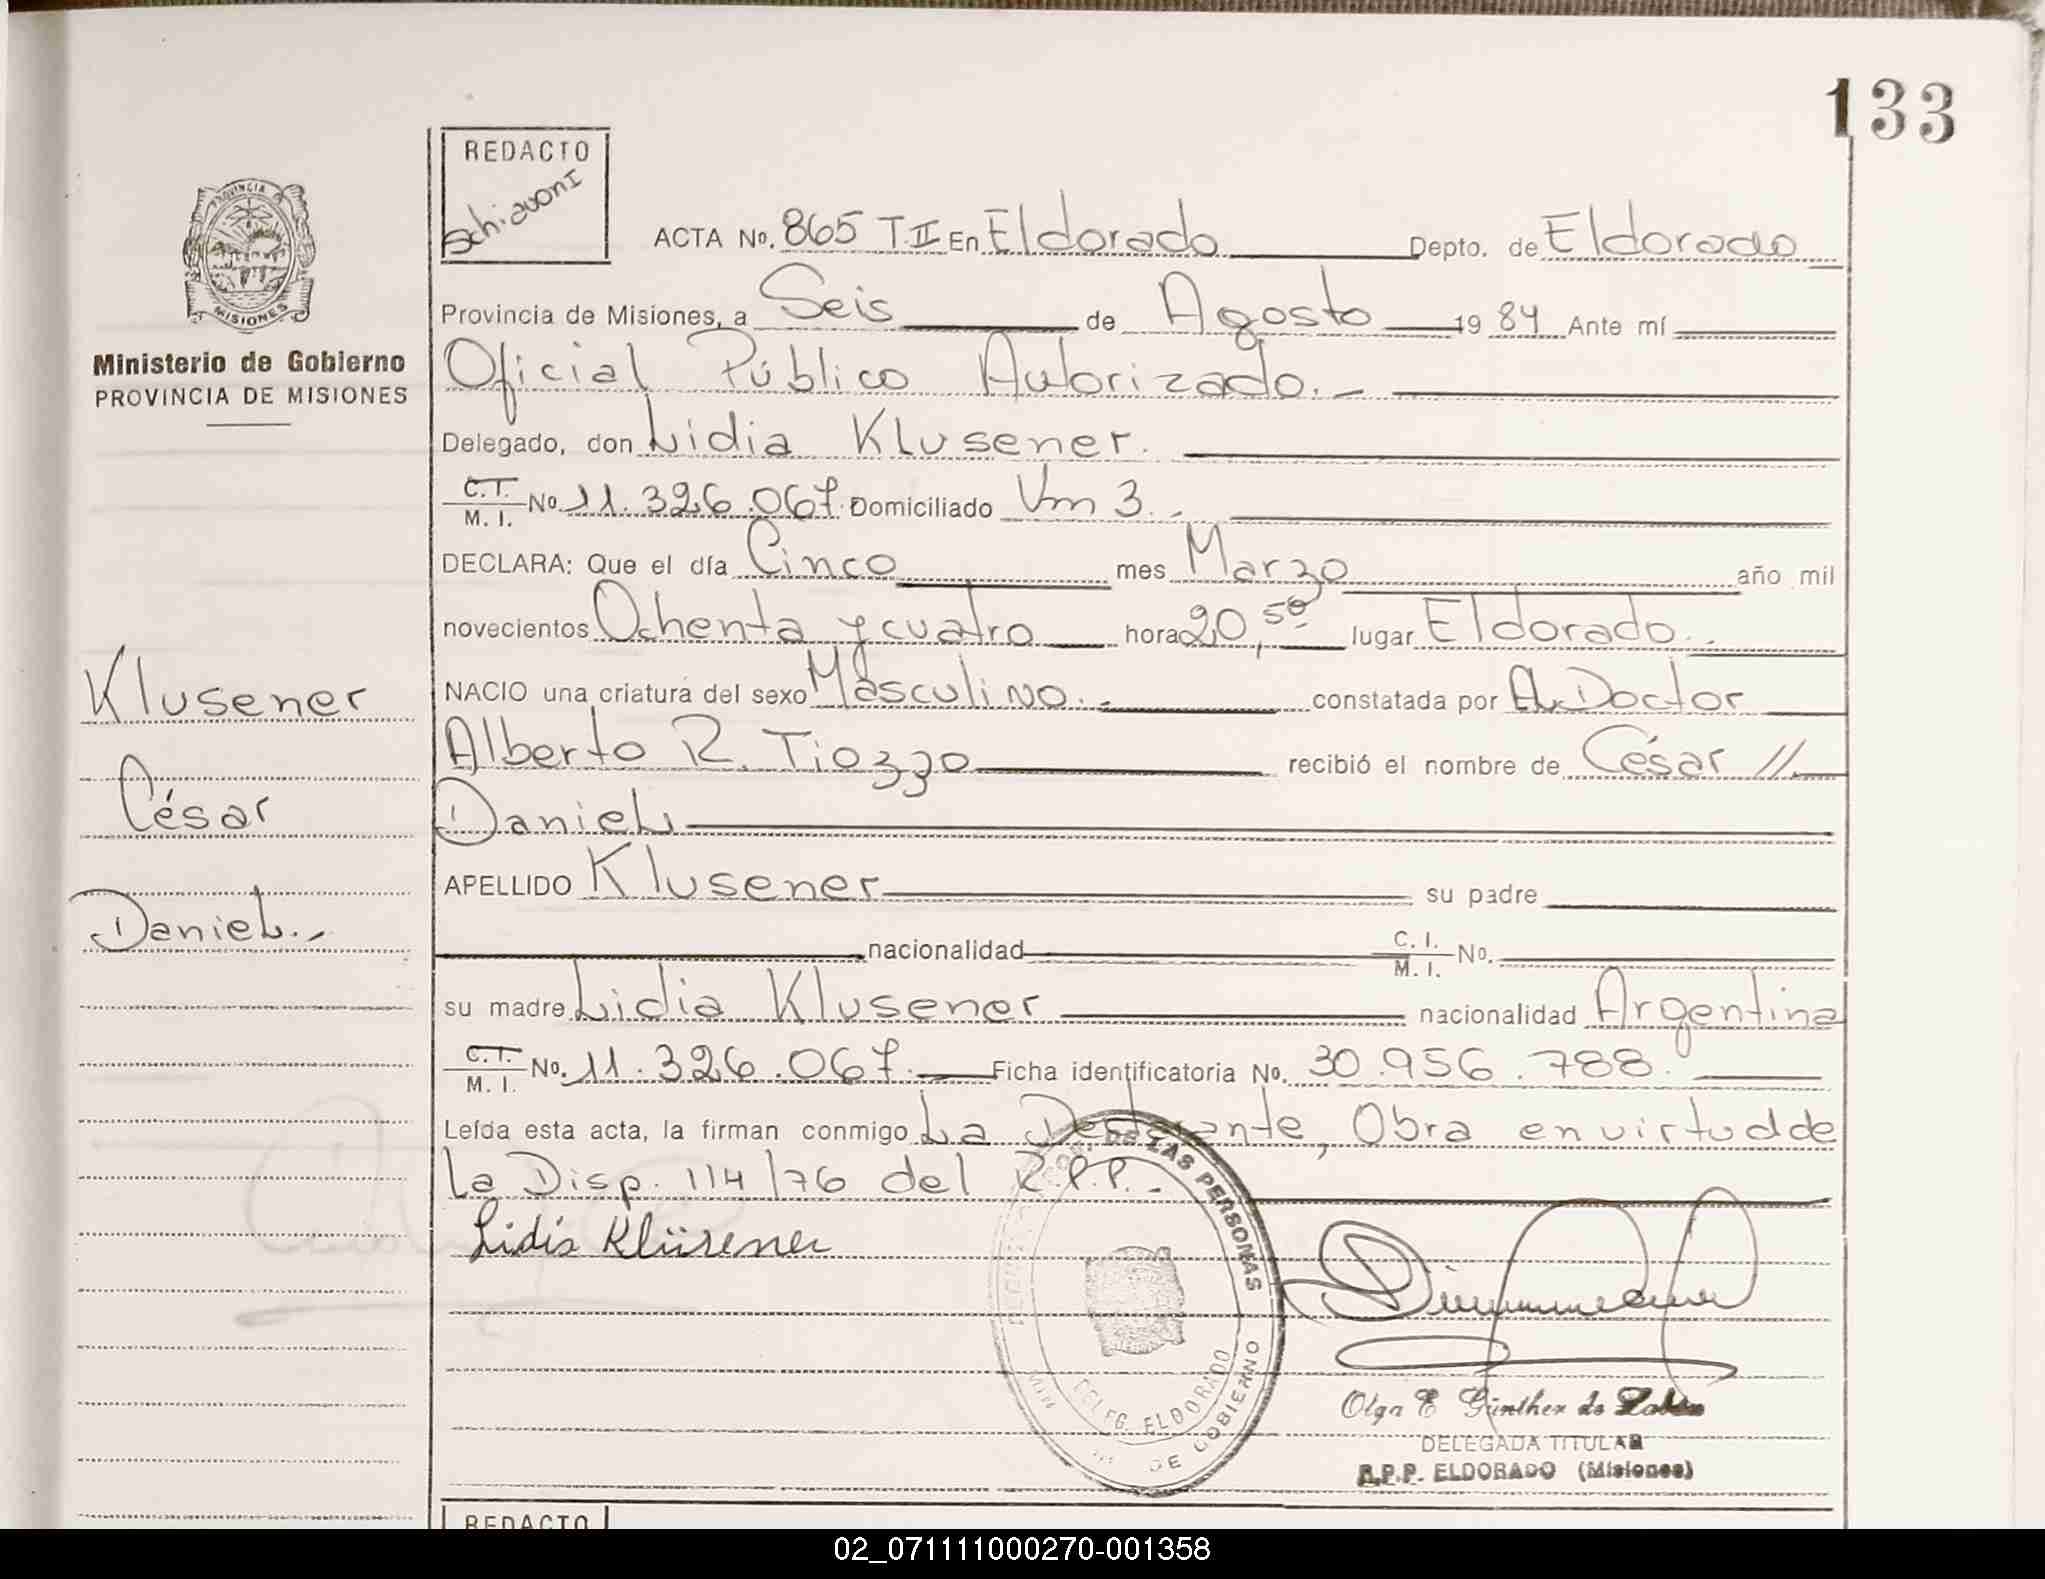 133
REDACTO
Schiavoni
PROVINCIA
MISIONES
Ministerio de Gobierno
PROVINCIA DE MISIONES
ACTA No. 865 T.II En Eldorado Depto. de Eldorado
Provincia de Misiones, a Seis de Agosto 19 84 Ante mí
Oficial Público Autorizado.-
Delegado, don Lidia Klusener.
C.I. M. I. No. 11.326.067. Domiciliado Km 3.-
DECLARA: Que el día Cinco mes Marzo año mil
novecientos Ochenta y cuatro hora 20,50 lugar Eldorado.-
NACIO una criatura del sexo Masculino.- constatada por El Doctor
Alberto R. Tiozzo recibió el nombre de César //
Daniel
APELLIDO Klusener su padre
nacionalidad C. I. M. I. No.
su madre Lidia Klusener nacionalidad Argentina
C.I. M. I. No. 11.326.067. Ficha identificatoria No. 30.956.788.
Leída esta acta, la firman conmigo La Declarante, Obra en virtud de
la Disp. 114/76 del R.P.P.-
Klusener
César
Daniel.-
Lidia Klüsener
DE LAS PERSONAS
DELEG. ELDORADO
DE GOBIERNO
Olga E Günther de
DELEGADA TITULAR
R.P.P. ELDORADO (Misiones)
REDACTO
02_071111000270-001358